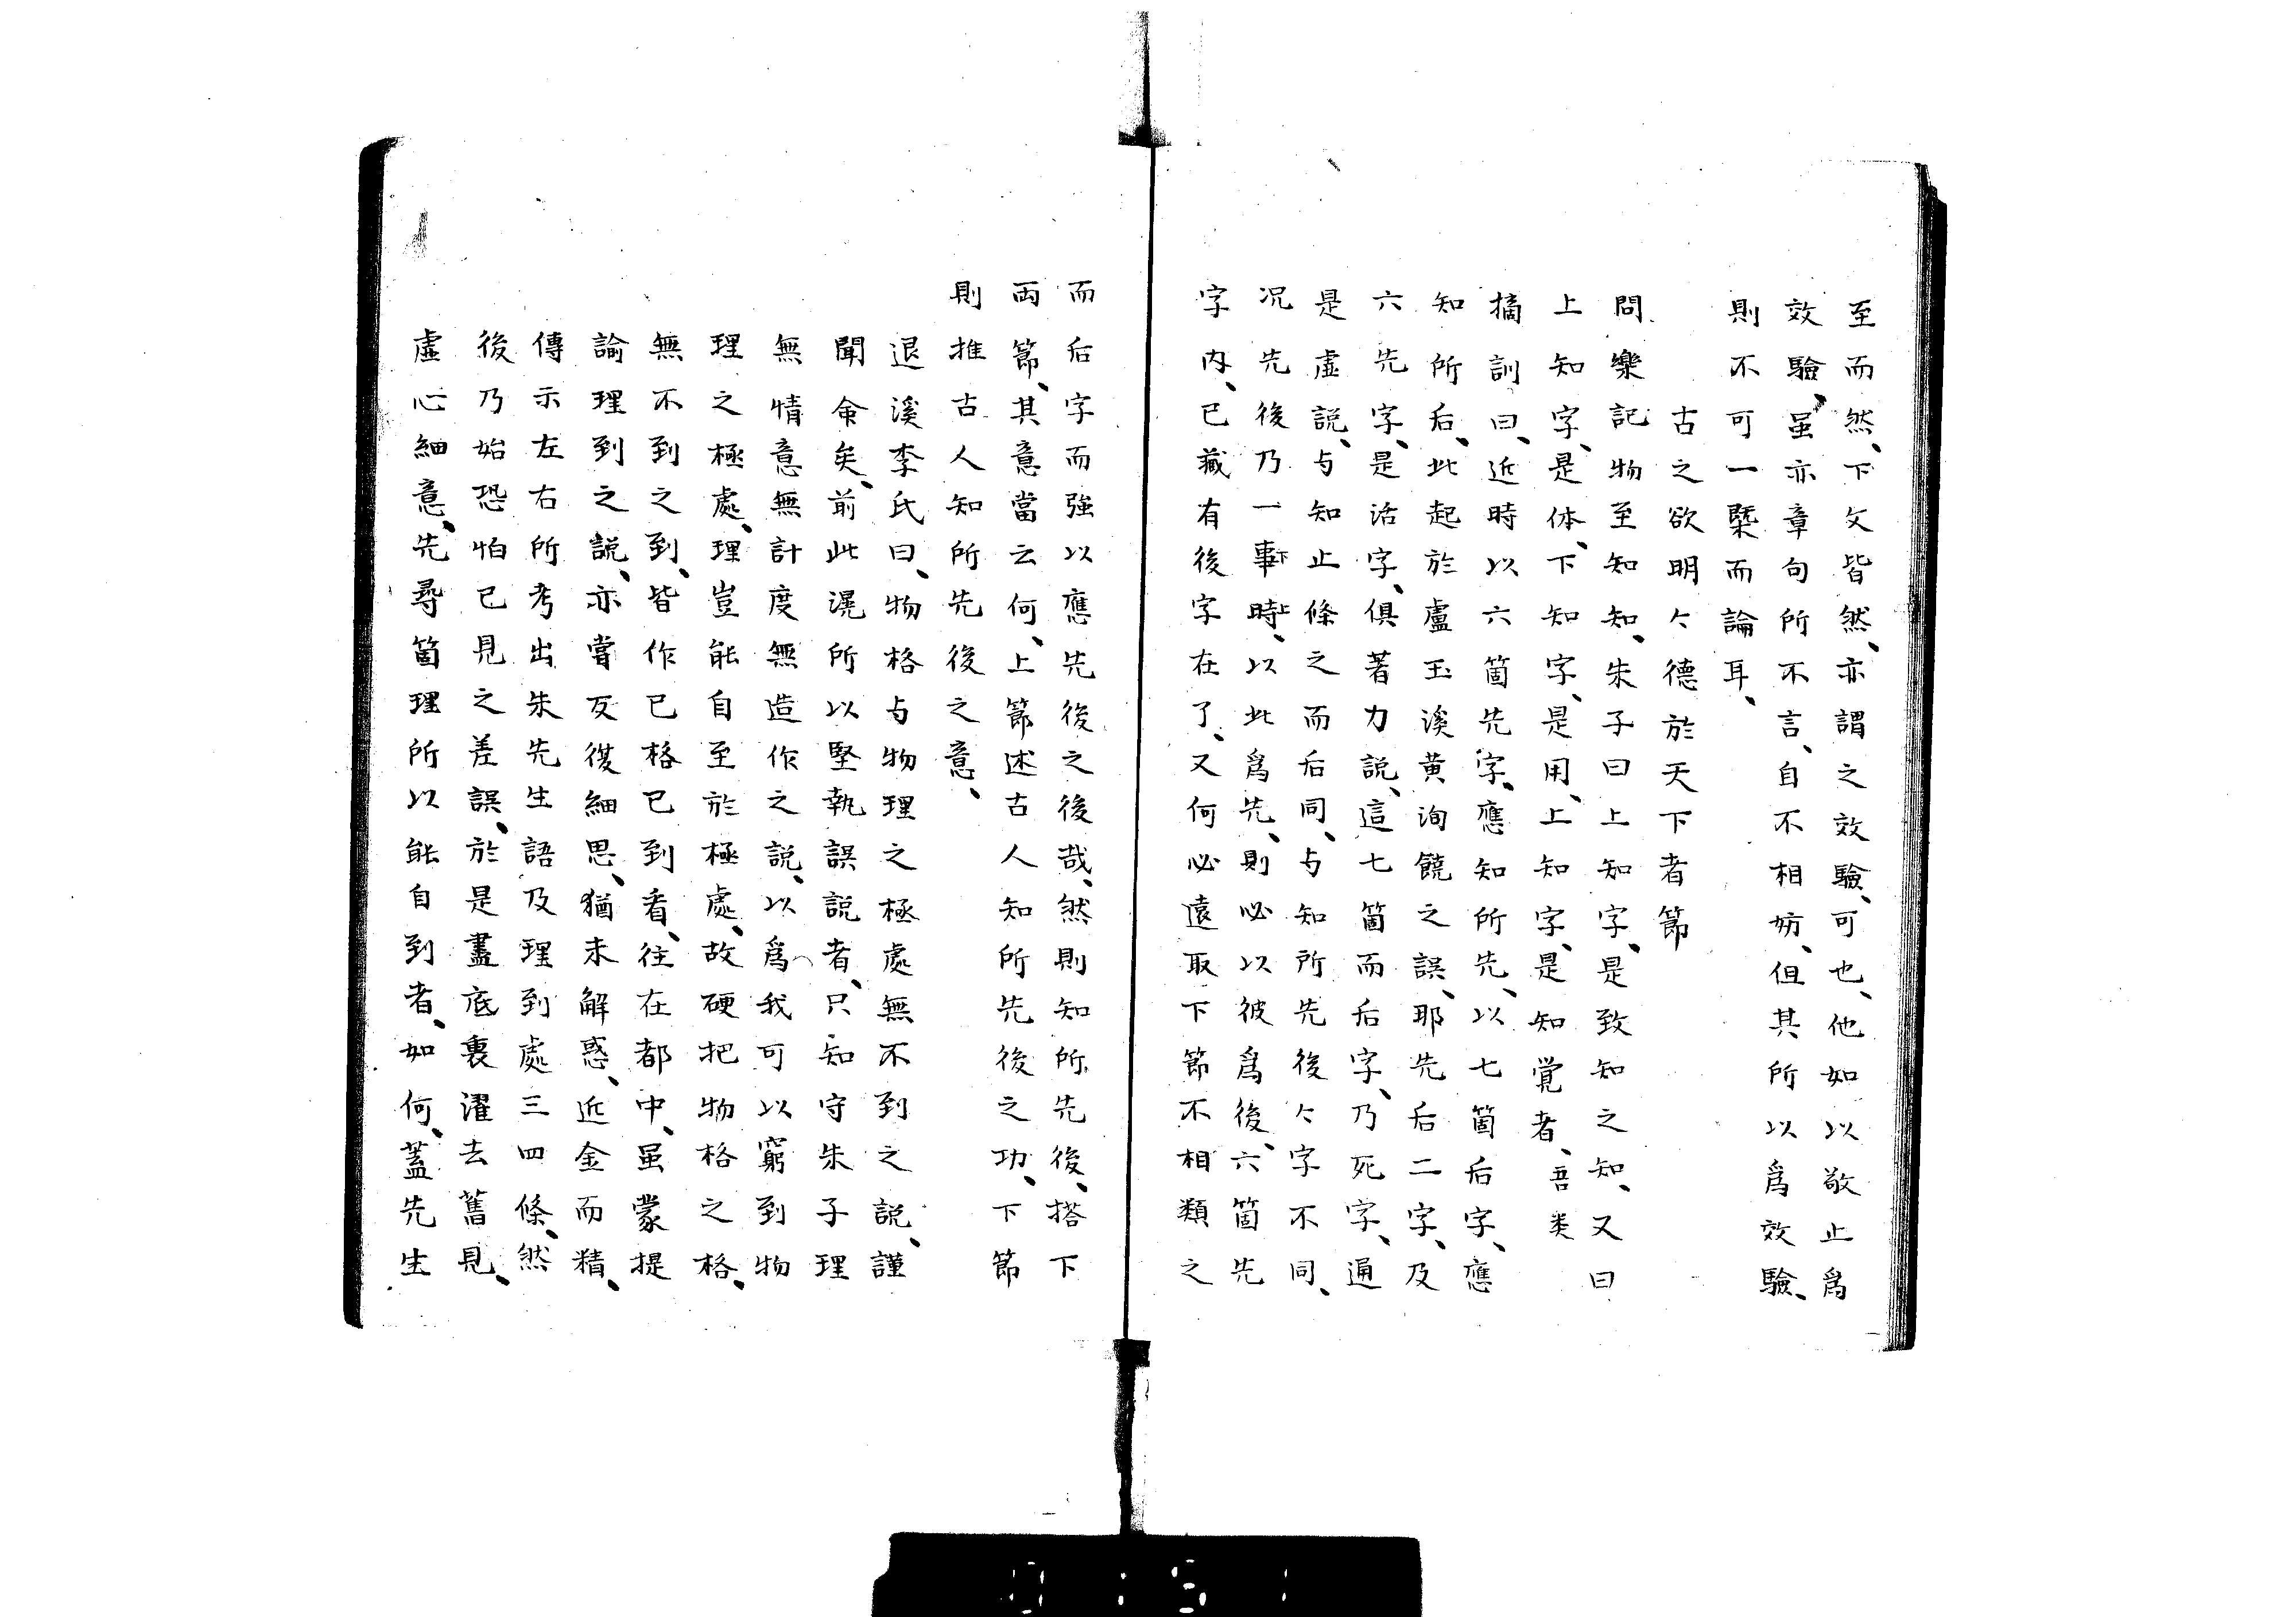 至而然、下文皆然、亦謂之效驗、可也、他如以敬止爲
效驗、虽亦章句所不言、自不相妨、但其所以爲效驗、
則不可一槩而論耳、
古之欲明々德於天下者節
問樂記物至知知、朱子曰上知字、是致知之知、又曰
上知字、是体、下知字、是用、上知字、是知覚者、吾类
摘訓曰、近時以六箇先字、應知所先、以七箇后字、應
知所后、此起於盧玉溪黄洵饒之誤、耶先后二字、及
六先字、是活字、俱著力説、這七箇而后字、乃死字、通
是虛説、与知止條之而后同、与知所先後々字不同、
况先後乃一事下時上、以此爲先、則必以彼爲後、六箇先
字内、已藏有後字在了、又何必遠取下節不相類之
而后字而強以應先後之後哉、然則知所先後、搭下
両節、其意當云何、上節述古人知所先後之功、下節
則推古人知所先後之意、
退溪李氏曰、物格与物理之極處無不到之説、謹
聞命矣、前此滉所以堅執誤説者、只知守朱子理
無情意無計度無造作之説、以爲我可以窮到物
理之極處、理豈能自至於極處、故硬把物格之格、
無不到之到、皆作已格已到看、往在都中、虽蒙提
諭理到之説、亦嘗反復細思、猶未解惑、近金而精、
傳示左右所考出朱先生語及理到處三四條、然
後乃始恐怕已見之差誤、於是盡底裏濯去舊見、
虛心細意、先尋箇理所以能自到者、如何、蓋先生